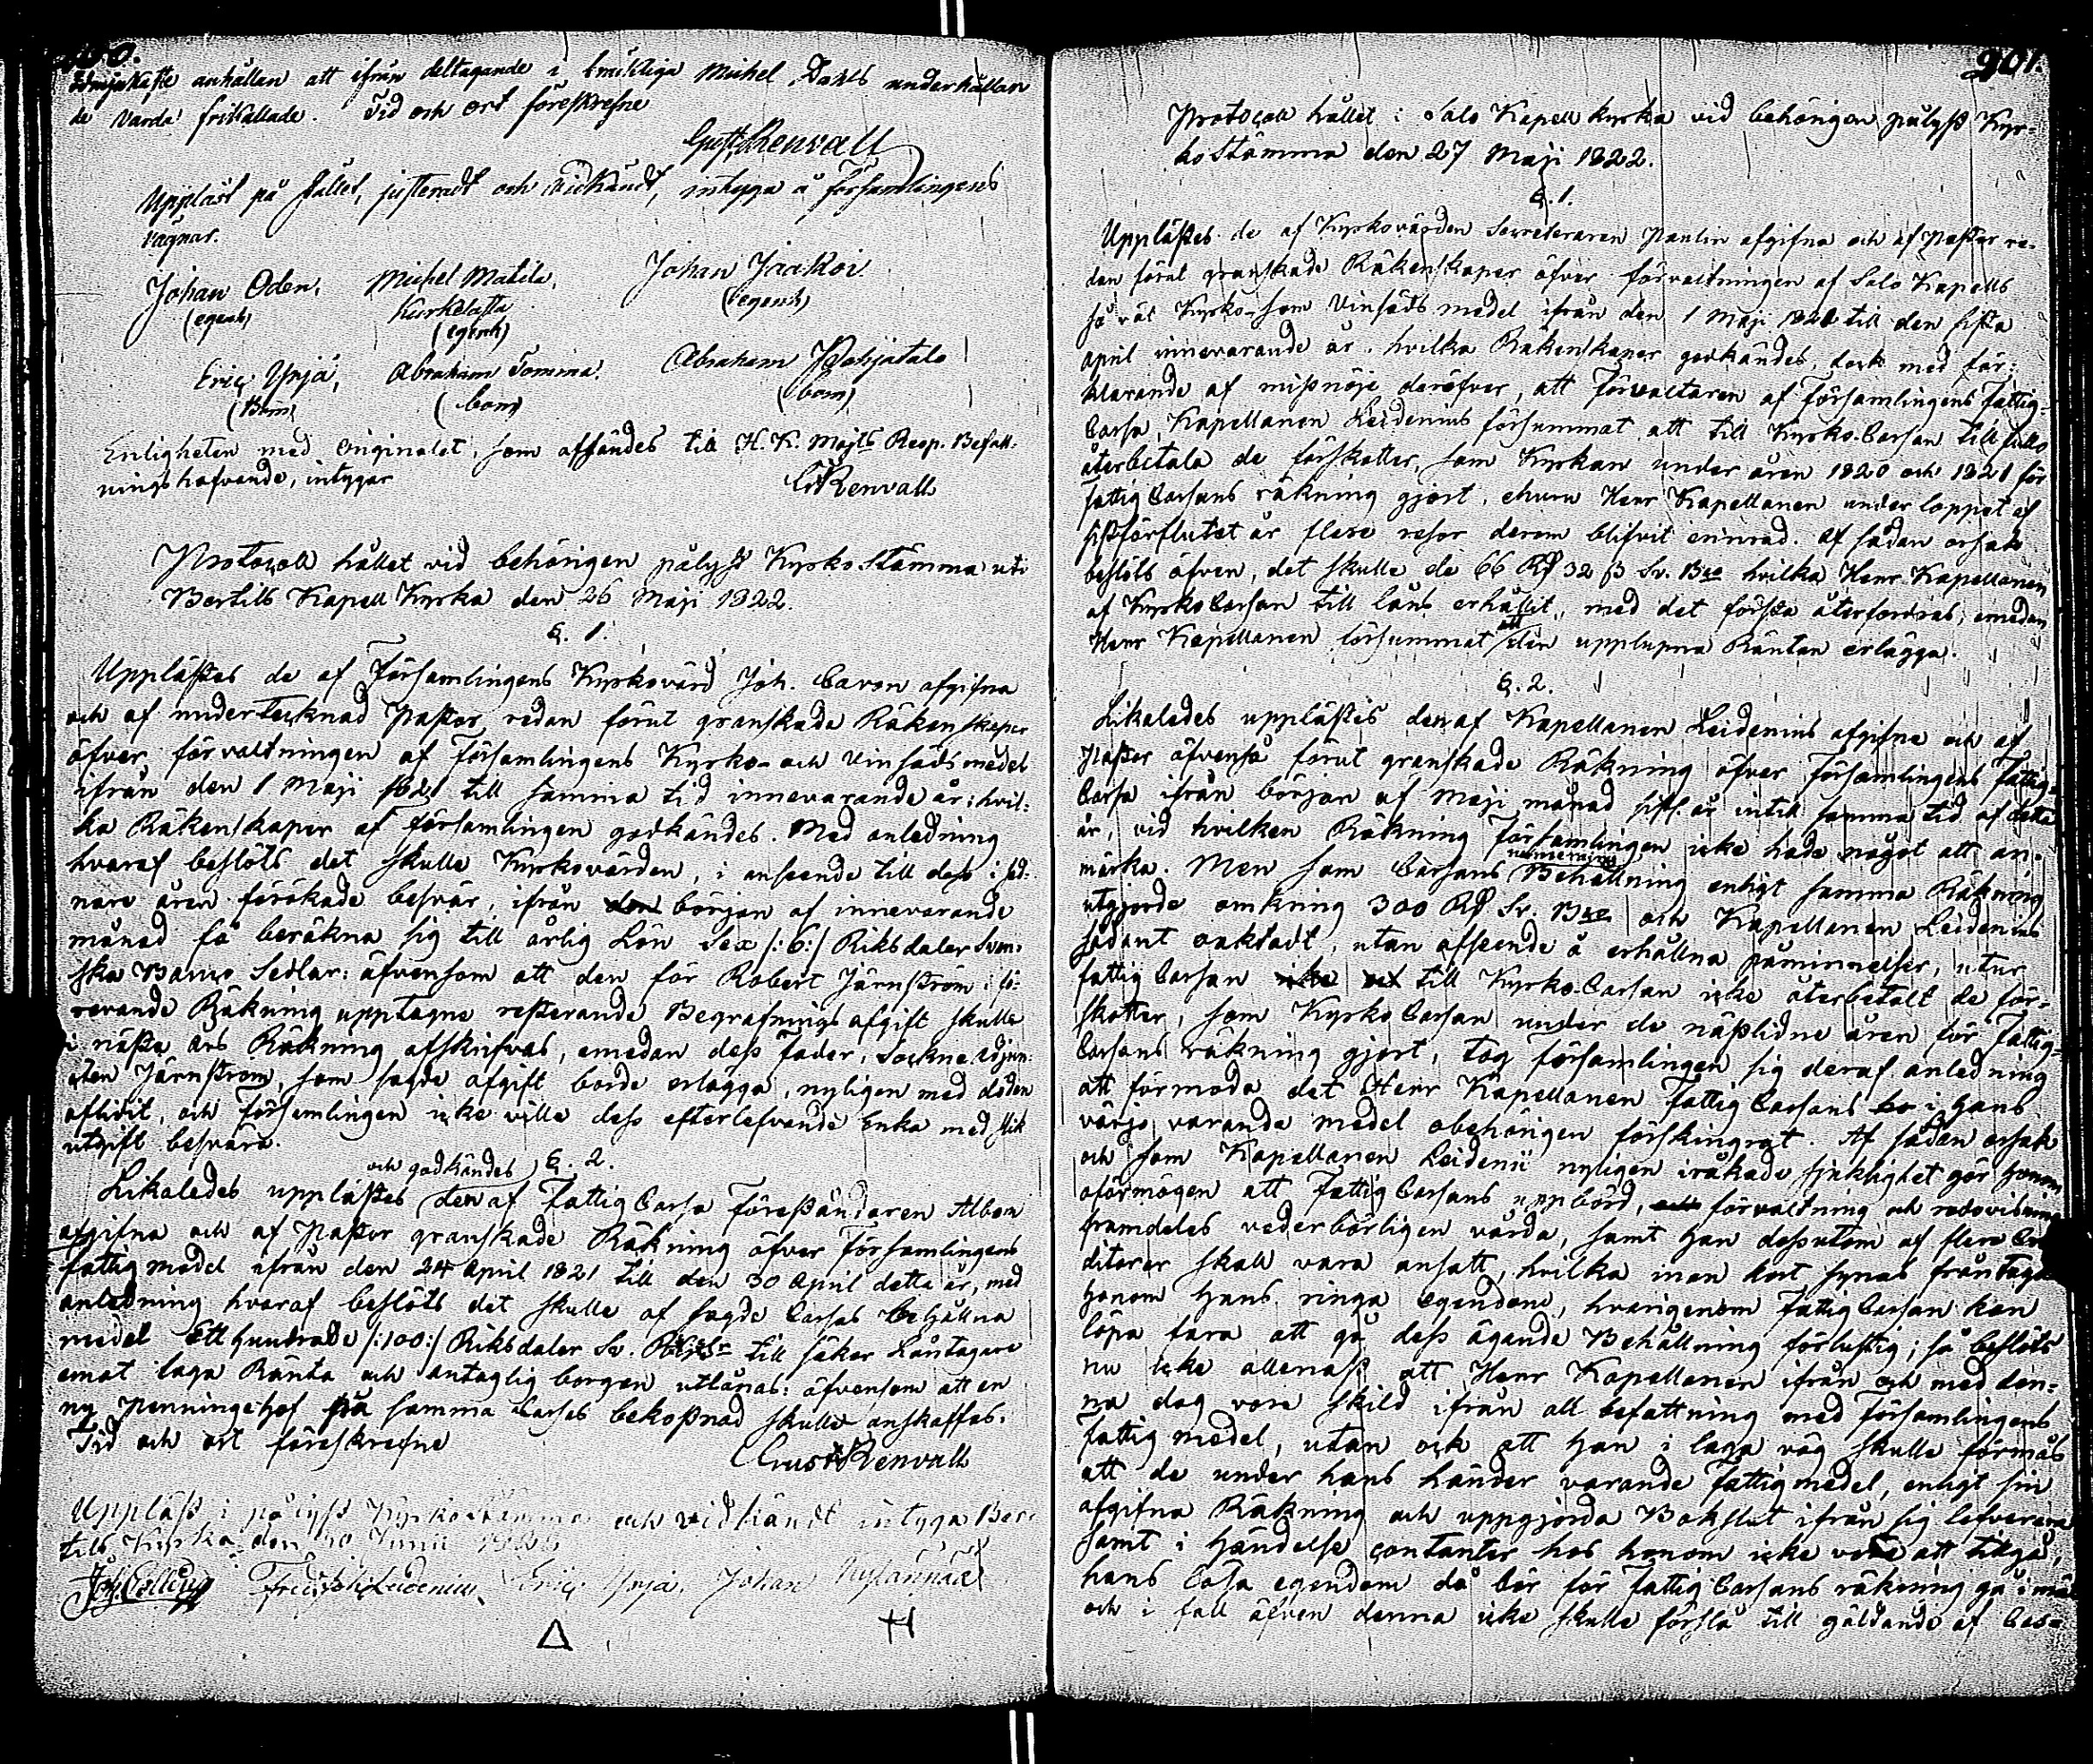 ödmjukaste anhållan att ifrån deltagande i bräcklige Michel Dahls underhållan
de varda frikallade. Tid och ort föreskrefne
Gust. Renvall
Uppläst på stället, justeradt och vidkändt, intyga å Församlingens
vägnar.
Johan Oden, Michel Matila, Johan Jaakoi
(egenh) Kurkelasta (egenh)
(egenh)
Eric Yrjä, Abraham Tomma, Abraham Pohjatalo
(Bom) (bom) (bom)
Enligheten med originalet, som afsändes till H. K. Majts Resp. Befall-
ningshafvande, intygar G. Renvall
Protocoll hållet vid behörigen pålyst Kyrkostämma uti
Bertils Kapell Kyrka den 26 Maji 1822.
§. 1.
Upplästes de af Församlingens Kyrkovärd Joh. Cavon afgifna
och af undertecknad Pastor redan förut granskade Räkenskaper
öfver förvaltningen af Församlingens Kyrko- och Vinsädsmedel
ifrån den 1 Maji 1821 till samma tid innevarande år; hvil-
ka Räkenskaper af Församlingen godkändes. Med anledning
hvaraf beslöts det skulle Kyrkovärden, i anseende till dess i sed-
nare åren förökade besvär, ifrån den början af innevarande
månad få beräkna sig till årlig Lön Sex /:6:/ Riksdaler Sven-
ska Banco Sedlar: äfvensom att den för Robert Järnström i fö-
revarande Räkning upptagne resterande Begrafningsafgift skulle
i nästa års Räkning afskrifvas, emedan dess Fader, Sockne adjun-
cten Järnström, som sagde afgift borde erlägga, nyligen med döden
aflidit, och Församlingen icke ville dess efterlefvande Enka med slik
utgift besvära.
§. 2.
och godkändes
Likaledes upplästes den af Fattig Cassa Föreståndaren Albom
afgifna och af Pastor granskade Räkning öfver Församlingens
fattigmedel ifrån den 24 April 1821 till den 30 April detta år, med
anledning hvaraf beslöts det skulle af sagde Cassas behållna
medel Ett hundrade /:100:/ Riksdaler Sv. till säker Låntagare
emot laga Ränta och antaglig borgen utlånas: äfvensom att en
ny Penningehof på samma Cassas bekostnad skulle anskaffas.
Tid och ort föreskrefne
Gust. Renvall
Uppläst i pålyst Kyrkostämma och vidkändt intyga Ber-
tils Kyrka den 30 Junii
Joh. Fred. Joh. Leidenius. Eric Yrjä. Johan
901.
Protocoll hållet i Salo Kapell kyrka vid behörigen pålyst Kyr-
kostämma den 27 Maji 1822.
§. 1.
Upplästes de af Kyrkovärden Secreteraren Paulin afgifna och af Pastor re-
dan förut granskade Räkenskaper öfver förvaltningen af Salo Kapells
så väl Kyrko- som Vinsäds medel ifrån den 1 Maji 1821 till den sista
April innevarande år, hvilka Räkenskaper godkändes, dock med för-
klarande af missnöje deröfver, att Förvaltaren af Församlingens Fattig-
Cassa, Kapellanen Leidenius försummat, att till Kyrko-Cassan till fullo
återbetala de förskotter, som Kyrkan under åren 1820 och 1821 för
Fattig Cassans räkning gjort, ehuru Herr Kapellanen under loppet af
sistförflutet år flere resor derom blifvit erinrad. Af sådan orsak
beslöts äfven, det skulle de 66 Rd 32 ß Sv. Bco hvilka Herr Kapellanen
af Kyrko Cassan till låns erhållit, med det första återfordras, emedan
Herr Kapellanen försummat att den upplupna Räntan erlägga.
§. 2.
Likaledes upplästes den af Kapellanen Leidenius afgifna och af
Pastor äfvenså förut granskade Räkning öfver Församlingens Fattig-
Cassa ifrån början af Maji månad sistl. år intill samma tid af detta
år, vid hvilken Räkning Församlingen icke hade något att an-
märka. Men som Cassans Behållning enligt samma Räkning
utgjorde omkring 300 Rd Sv. Bco och Kapellanen Leidenius
sådant oaktadt, utan afseende å erhållna påminnelser, utur
fattig Cassan till Kyrko-Cassan icke återbetalt de för-
skotter, som Kyrko Cassan under de nästlidne åren för Fattig-
Cassans räkning gjort, tog församlingen sig deraf anledning
att förmoda det Herr Kapellanen Fattig Cassans i hans
värjo varande medel obehörigen förskingrat. Af sådan orsak
och som Kapellanen Leidenii nyligen iråkade sjuklighet gör honom
oförmögen att Fattig Cassans uppbörd, förvaltning och redovisning
framdeles vederbörligen vårda, samt han dessutom af flere Cre-
ditorer skall vara ansatt, hvilka inom kort synas fråntaga
honom hans ringa egendom, hvarigenom Fattig Cassan kan
löpa fara att gå dess ägande Behållning förlustig; så beslöts
nu icke allenast att Herr Kapellanen ifrån och med den-
na dag vore skild ifrån all befattning med Församlingens
Fattig medel, utan ock att han i laga väg skulle förmås
att de under hans händer varande Fattigmedel, enligt sin
afgifna Räkning och uppgjorda Bokslut ifrån sig leverera
samt i händelse contanter hos honom icke vore att tillgå,
hans lösa egendom då bör för Fattig Cassans räkning gå i mät
och i fall äfven denna icke skulle förslå till gäldande af Cas-